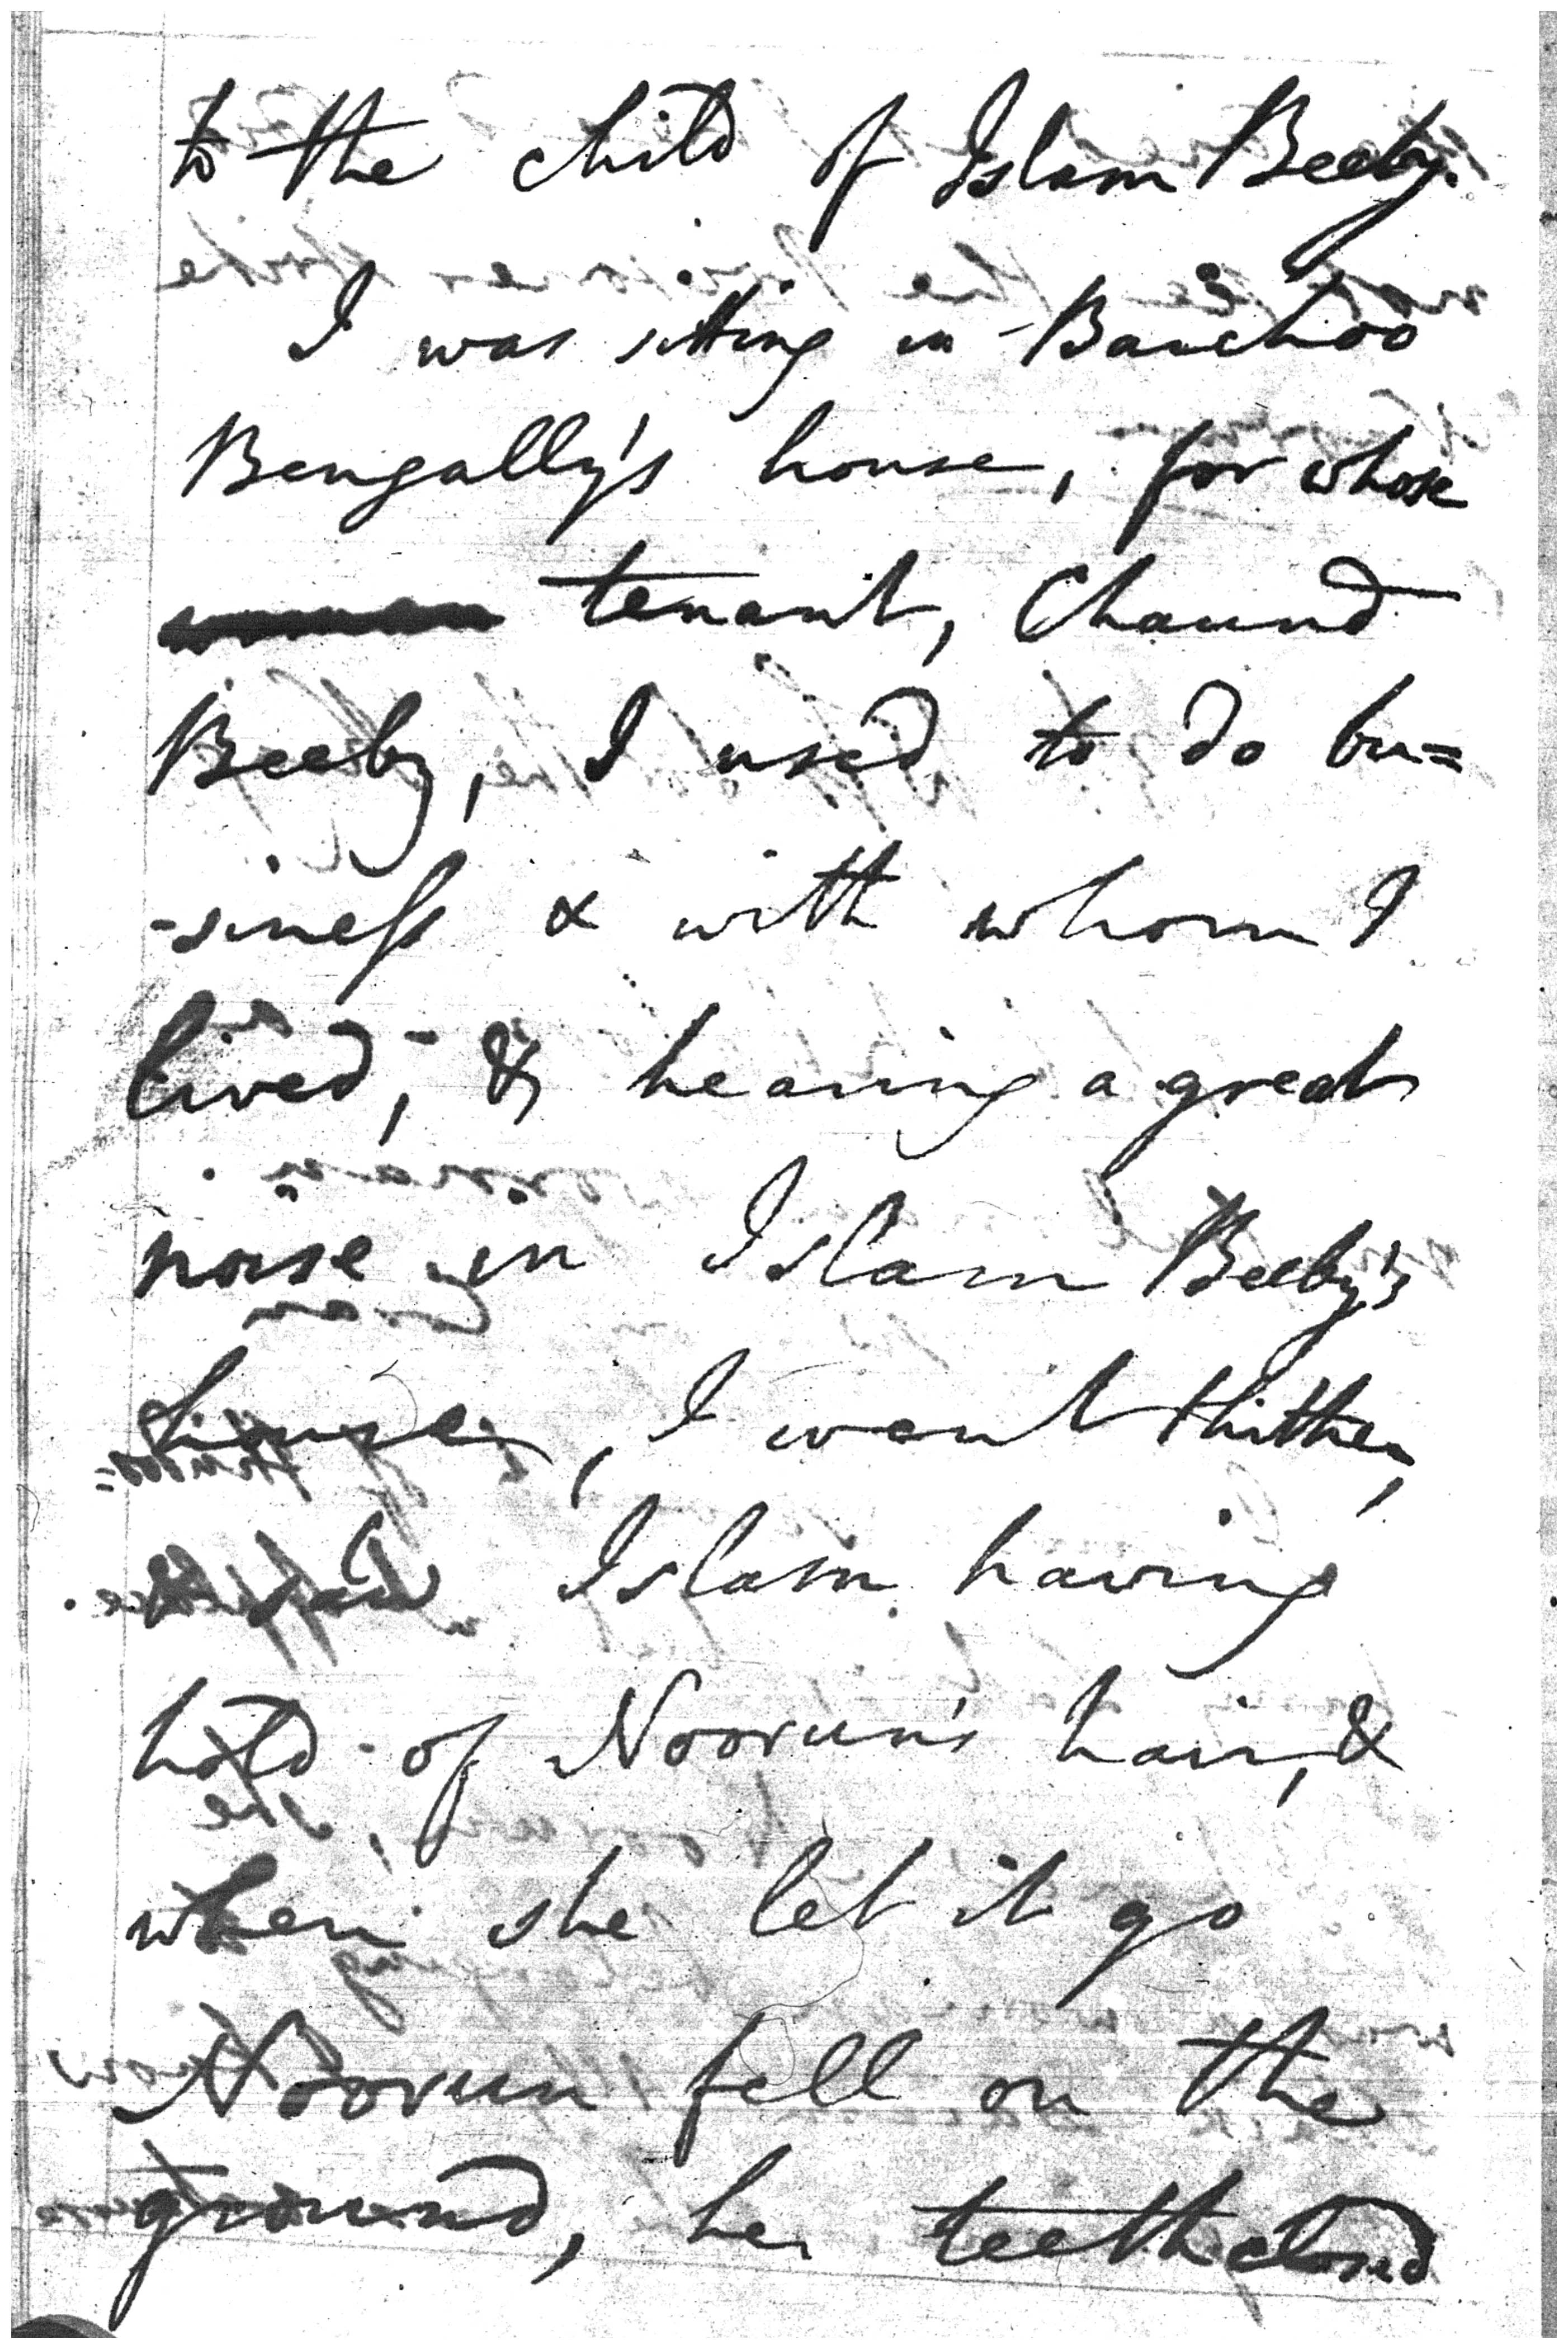 to the child of Islam Beeby.
I was sitting in Banchoo
Bengally's house, for whose
tenant, Chaund
Beeby, I used to do bu=
-siness & with whom I
lived; - & hearing a great
noise in Islam Beeby's
house, I went thither,
& saw Islam having
hold of Noorun's hair, &
when she let it go
Noorun fell on the
ground, her teeth closed